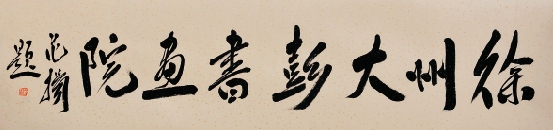 徐州大彭書画院
范擴題